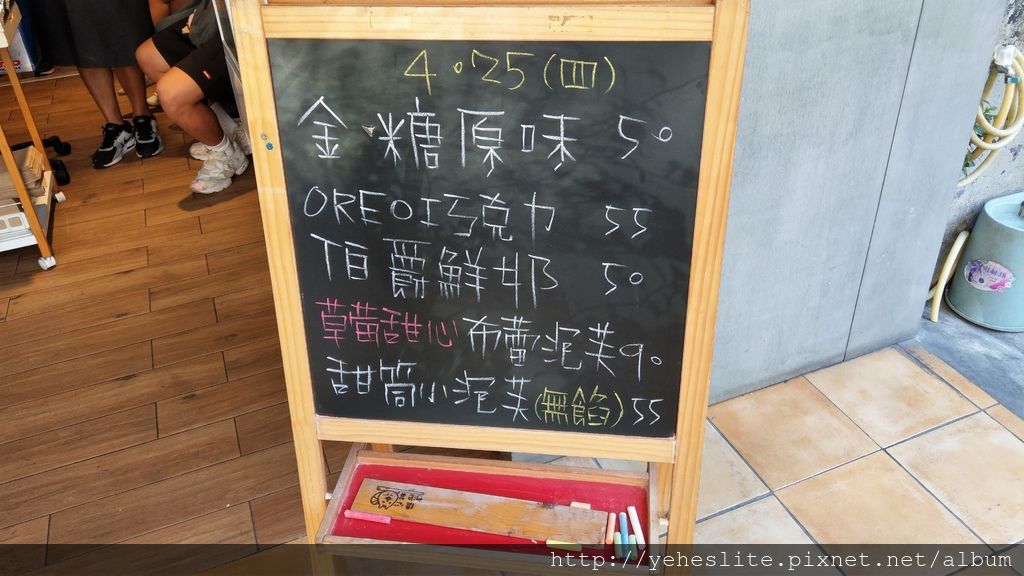 4.25(四)
金糖原味 50
OREO巧克力 55
T百爵鮮ㄋㄞ 50
草莓甜心布蕾泡芙90
甜筒小泡芙(無餡)55
http://yeheslite.pixnet.net/album